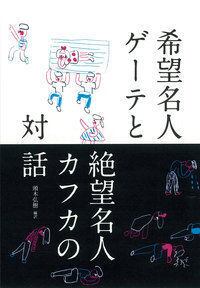 希望名人
ゲーテと
絶望名人
カフカの
対話
頭木弘樹 編訳